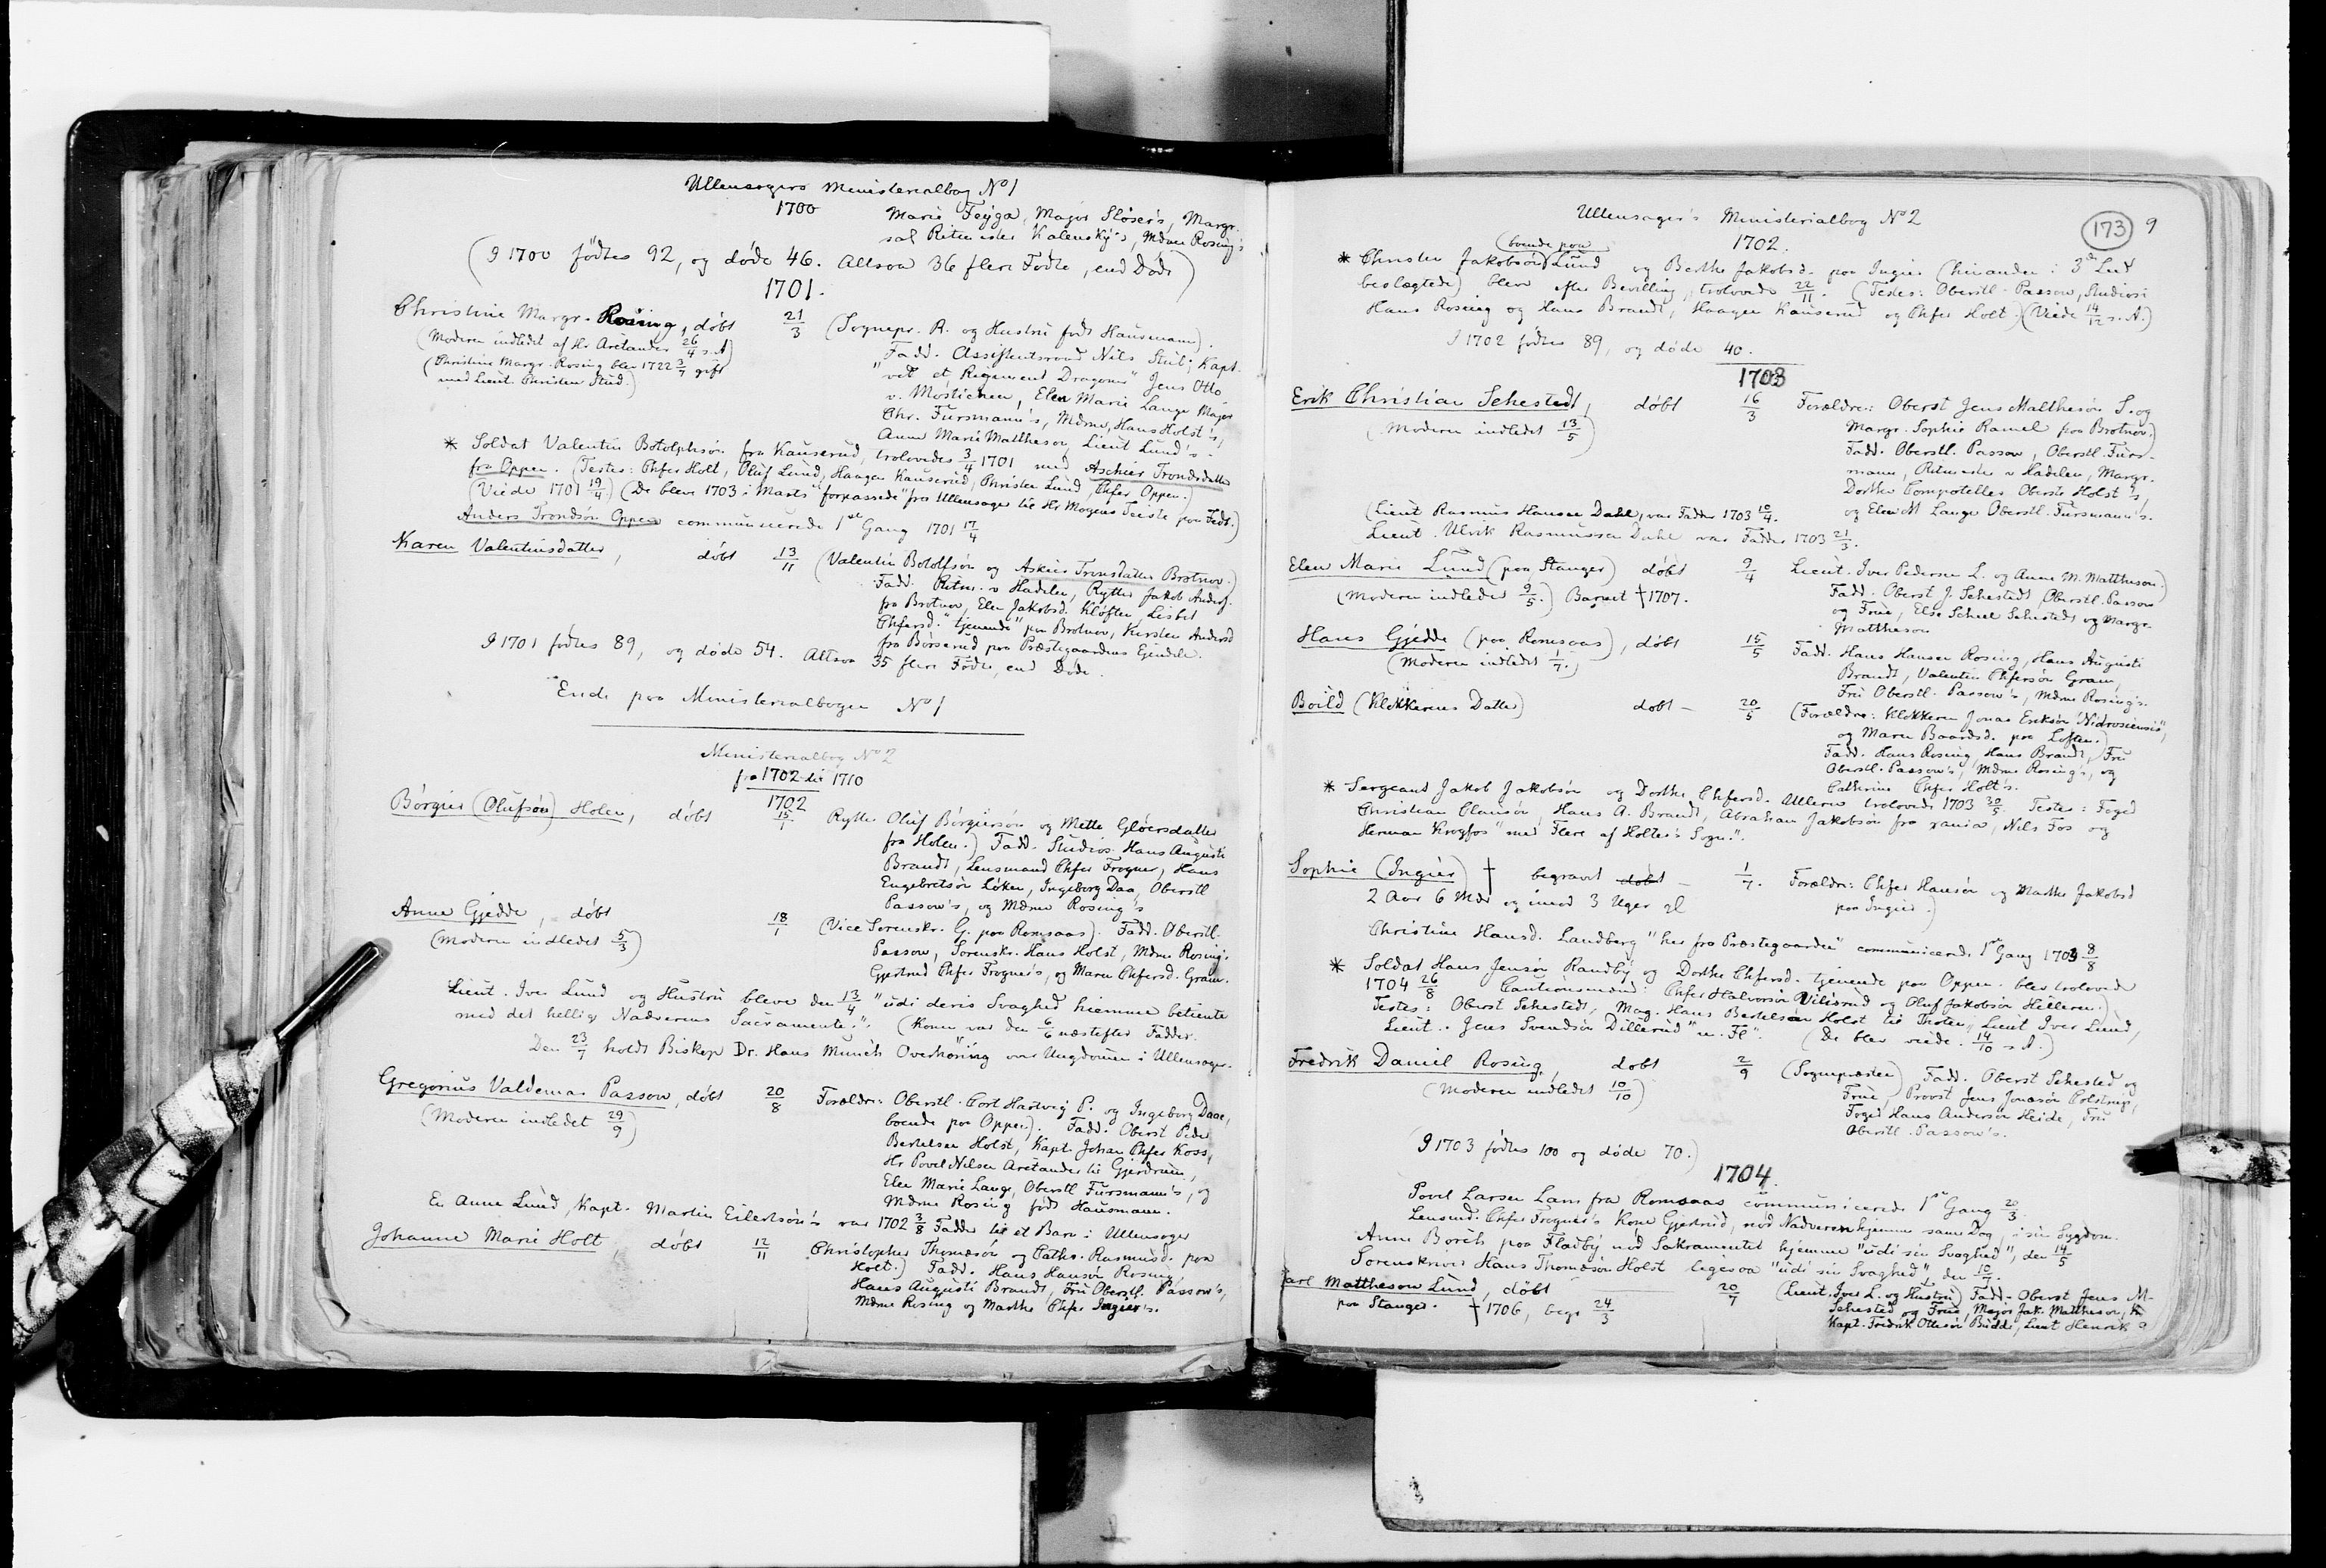 Ullensagers Ministerialbog No 1
1700
Marie Feyga, Major Slöser's, Margr.
sal Ritmester Kalensky's, Mdme Rosing's
(I 1700 födtes 92, og døde 46. Altsaa 36 flere Födte, end Döde)
1701.
Christine Margr. Rosing, døbt 21/3 (Sognepr. R. og Hustru født Hausmann).
(Moderen indledet af Hr Aretander 26/4 s. A)
(Christine Margr. Rosing blev 1722 3/7 gift
med Lieut. Christen Stud.)
Fadd. Assistentsraad Nils Stub; Kapt.
"ved et Regiment Dragoner" Jens Otto
v. Mösticken, Elen Marie Lange Major
Chr. Fursmann's, Mdme Hans Holst's,
Anne Marie Mattheson, Lieut Lund's.
* Soldat Valentin Botolphsön fra Kauserud, trolovedes 3/4 1701 med Aschier Trondsdatter
fra Oppen. (Testes: Chfer Holt, Oluf Lund, Haagen Kauserud, Christen Lund, Chfer Oppen.)
(Viede 1701 19/4) (De bleve 1703 i Marts "forpassede" fra Ullensager til Hr Mogens Teiste paa Fedt.)
Anders Trondsön Oppen communicerede 1ste Gang 1701 17/4
Karen Valentinsdatter, døbt 13/11 (Valentin Botolfsön og Askier Tronsdatter Brotnov.)
Fadd. Ritm. v Hadelen, Rytter Jakob Andersf.
fra Brotnov, Elen Jakobsd. Kløften, Lisbet
Chfersd. "tjenende" paa Brotnov, Kirsten Andersd
fra Børserud paa Præstegaardens Ejendele.
I 1701 födtes 89, og døde 54. Altsaa 35 flere Födte, end Døde.
Ende paa Ministerialbogen No 1
Ministerialbog No 2
fra 1702 til 1710
1702
Börgier (Olufsön) Holen, døbt 15/1 Rytter Oluf Börgiersön og Mette Gløersdatter
fra Holen.) Fadd. Studios. Hans Augusti
Brandt, Lensmand Chfer Frogner, Hans
Engebretsön Löken, Ingeborg Daa, Oberstl
Passow's, og Mdme Rosing's
Anne Gjedde, døbt 18/1 (Vice Sorenskr. G. paa Romsaas). Fadd. Oberstl.
(Moderen indledet 5/3)
Passow, Sorenskr. Hans Holst, Mdme Rosing's
Gjertrud Chfer Frogner's, og Maren Chfersd. Gram.
Lieut. Iver Lund og Hustru bleve den 13/4 "udi deris Svaghed hiemme betiente
med det hellige Nadverens Sacramente." (Konen var den 6/6 næstefter Fadder.
Den 23/7 holdt Biskop Dr. Hans Munch Overhöring over Ungdomen i Ullensager.
Gregorius Valdemar Passow, døbt 20/8 Forældre: Oberstl. Cort Hartvig P. og Ingeborg Daae,
(Moderen indledet 29/9)
boende paa Oppen). Fadd. Oberst Peder
Bertelsen Holst, Kapt. Johan Chfer Koss,
Hr Povel Nilsen Aretander til Gjerdrum,
Elen Marie Lange, Oberstl Fursmann's, og
Mdme Rosing født Hausmann.
En Anne Lund, Kapt. Martin Eilertsön's var 1702 3/8 Fadder til et Barn i Ullensager
Johanne Marie Holt, døbt 12/11 Christopher Thomæsön og Cathr. Rasmusd. paa
Holt.) Fadd. Hans Hansön Rosing,
Hans Augusti Brandt, Fru Oberstl. Passow's,
Mdme Rosing og Marthe Chfer Ingier's.
Ullensager's Ministerialbog No 2
173 9
1702.
(boende paa
* Christen Jakobsön Lund og Berthe Jakobsd. paa Ingier (hinanden i 3de Led
beslægtede) bleve efter Bevilling trolovede 22/11. (Testes: Oberstl. Passow, Studiosi
Hans Rosing og Hans Brandt, Haagen Kauserud og Chfer Holt.) (Viede 14/12 s. A.)
I 1702 födtes 89, og døde 40.
1703
Erik Christian Sehestedt, døbt 16/3 Forældre: Oberst Jens Mattheson S. og
(Moderen indledet 13/5)
Margr. Sophie Ramel paa Brotnov.)
Fadd. Oberstl. Passow, Oberstl. Furs-
mann, Ritmester v Hadelen, Margr.
Dorthe Compoteller Oberst Holst's,
og Elen M Lange Oberstl. Fursmann's.
(Lieut Rasmus Hansen Dahl, var Fadder 1703 10/4.
Lieut. Ulrik Rasmussen Dahl var Fadder 1703 21/3.
Elen Marie Lund (paa Stanger) døbt 9/4 Lieut. Iver Pedersen L. og Anne M. Mattheson.)
(Moderen indledet 9/5.) Barnet † 1707.
Fadd. Oberst J. Sehestedt, Oberstl. Passow
og Frue, Else Scheel Sehestedt og Margr.
Mattheson
Hans Gjedde (paa Romsaas), døbt 15/5 Fadd. Hans Hansen Rosing, Hans Augusti
(Moderen indledet 1/7.)
Brandt, Valentin Chfersön Gram,
Fru Oberstl. Passow's, Mdme Rosing's.
Boild (Klokkerens Datter) døbt – 20/5 (Forældre: Klokkeren Jonas Eriksön "Nidrosiensis",
og Maren Baardsd. paa Loften.)
Fadd. Hans Rosing, Hans Brandt, Fru
Oberstl. Passow's, Mdme Rosing's, og
Cathrine Chfer Holt's.
* Sergeant Jakob Jakobsön og Dorthe Chfersd. Ulleren trolovede 1703 30/5 Testes: Foged
Christian Clausön, Hans A. Brandt, Abraham Jakobsön fra xania, Nils Fos og
Herman Krogfos "med Flere af Holter's Sogn".
Sophie (Ingier) † begravet døbt – 1/7. Forældre: Chfer Hansön og Marthe Jakobsd
2 Aar 6 Mdr og imod 3 Uger gl
paa Ingier.)
Christine Hansd. Landberg "her fra Præstegaarden" communicerede 1ste Gang 1703 8/8
* Soldat Hans Jensön Randby og Dorthe Chfersd. tjenende paa Oppen. blev trolovede
1704 26/8 Cautionsmænd: Chfer Halvorsön Vilisrud og Oluf Jakobsön Hielleren.)
Testes: Oberst Sehestedt, Mag. Hans Bertelsön Holst til Thoten, Lieut Iver Lund,
Lieut. Jens Svendsön Dillerud "m. Fl". (De blev viede 14/10 s. A.)
Fredrik Daniel Rosing, døbt 2/9 (Sognepræsten) Fadd. Oberst Sehested og
(Moderen indledet 10/10)
Frue, Provst Jens Jonasön Colstrup,
Foged Hans Andersön Heide, Fru
Oberstl. Passow's.
(I 1703 födtes 100 og døde 70.)
1704.
Povel Larsen Lam fra Romsaas communicerede 1ste Gang 20/3.
Lensmd. Chfer Frogner's Kone Gjertrud, nød Nadveren hjemme samme Dag, i sin Sygdom.
Anne Borch paa Fladby nød Sakramentet hjemme "udi sin Svaghed", den 14/5
Sorenskriver Hans Thomæsön Holst ligesaa "udi sin Svaghed" den 10/7.
Carl Mattheson Lund, døbt 20/7 (Lieut. Iver L. og Hustru) Fadd. Oberst Jens M.
paa Stanger. † 1706, begr 24/3
Sehested og Frue, Major Jak. Mattheson,
Kapt. Fredrik Ottesön Budde, Lieut Henrik